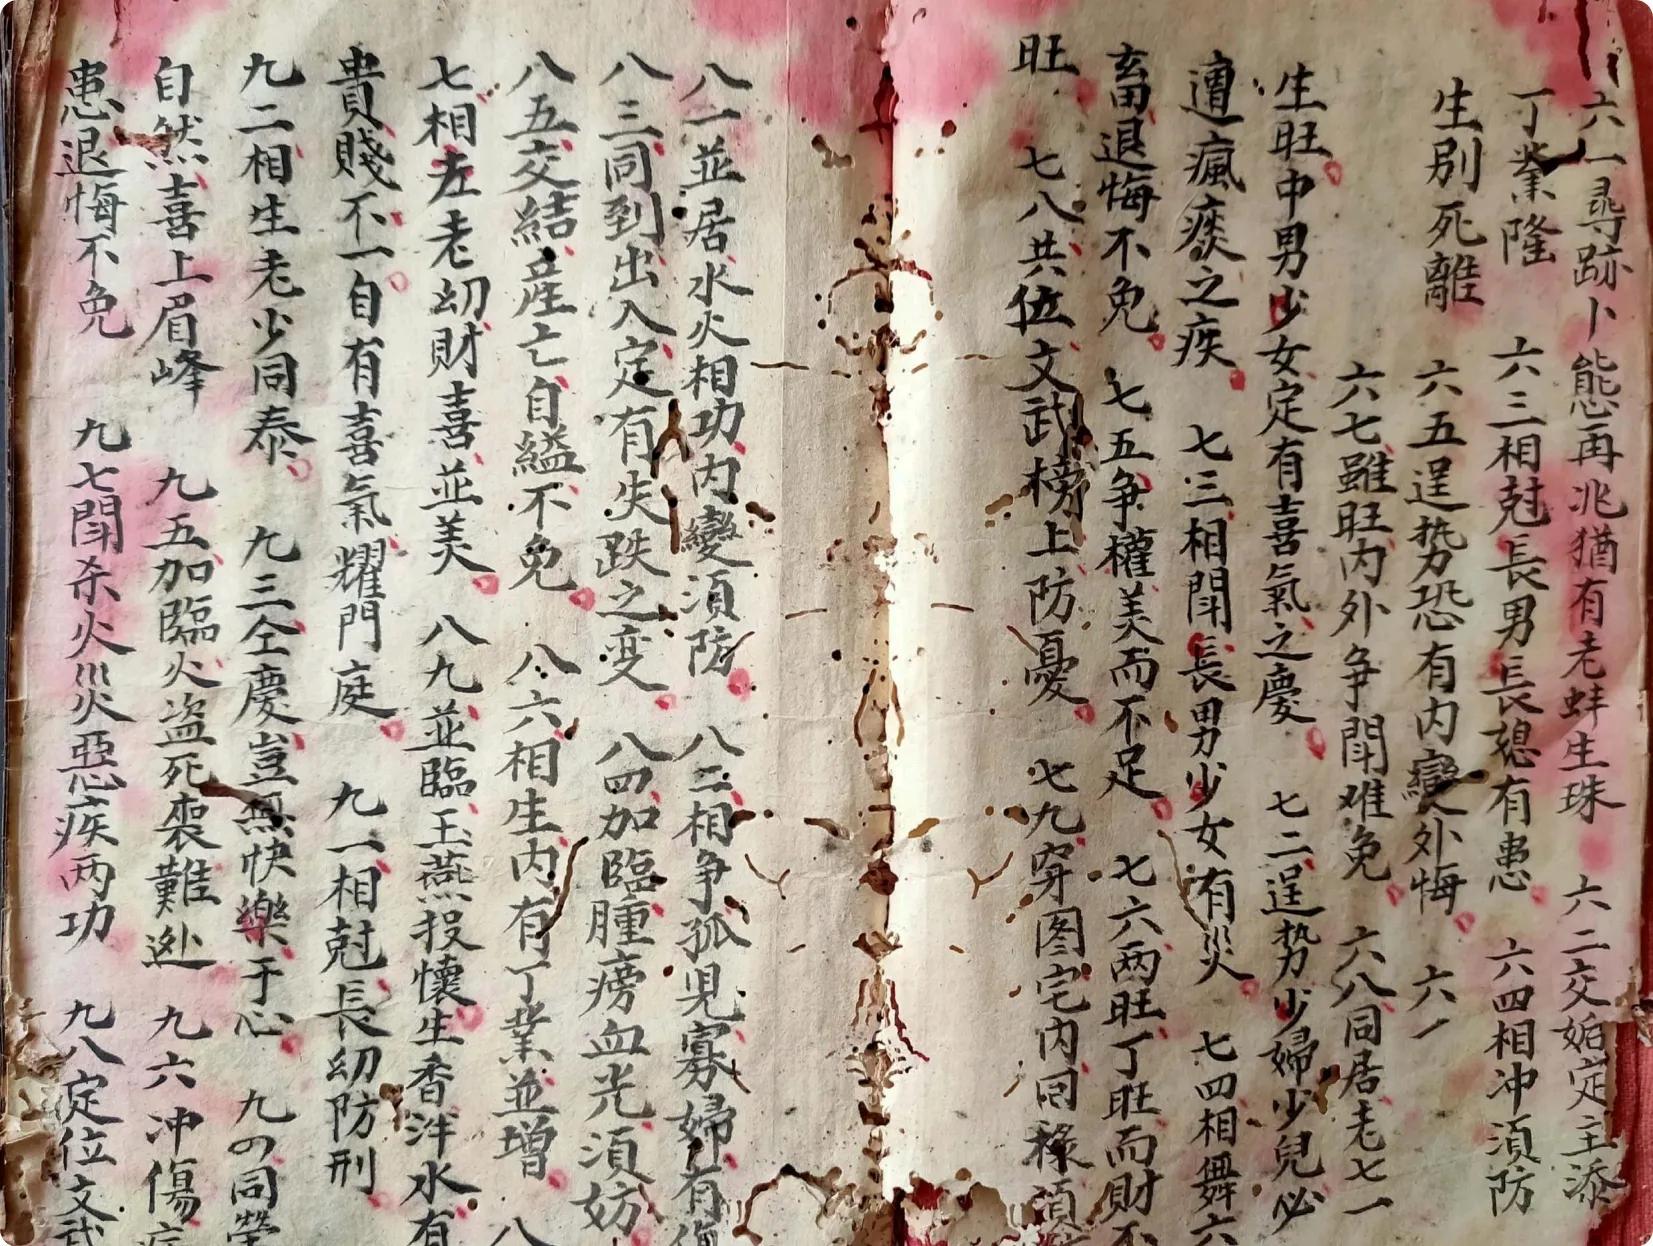 六一尋跡卜態再兆猶有老蚌生珠　六二交姤定主添
丁業隆　六三相尅長男長媳有患　六四相冲須防
生別死離　六五逞势恐有内變外悔　六一
六七雖旺内外争閗难免　六八同居老七一
生旺中男少女定有喜氣之慶　七二逞势少婦少兒必
遭瘋痰之疾　七三相閗長男少女有災　七四相舞六
畜退悔不免　七五争權美而不足　七六两旺丁旺而財不
旺　七八共位文武榜上防憂　七九穿图宅内回禄須
八一並居水火相功内變須防　八二相争孤児寡婦有傷
八三同到出入定有失跌之变　八四加臨腫痨血光須妨
八五交結産亡自縊不免　八六相生内有丁業並增　八
七相左老幼財喜並美　八九並臨玉燕投懷生香泮水有
貴賤不一自有喜氣耀門庭　九一相尅長幼防刑
九二相生老少同泰　九三仝慶豈無快樂于心　九四同榮
自然喜上眉峰　九五加臨火盗死喪難迯　九六冲傷
患退悔不免　九七閗杀火災惡疾两功　九八定位文武